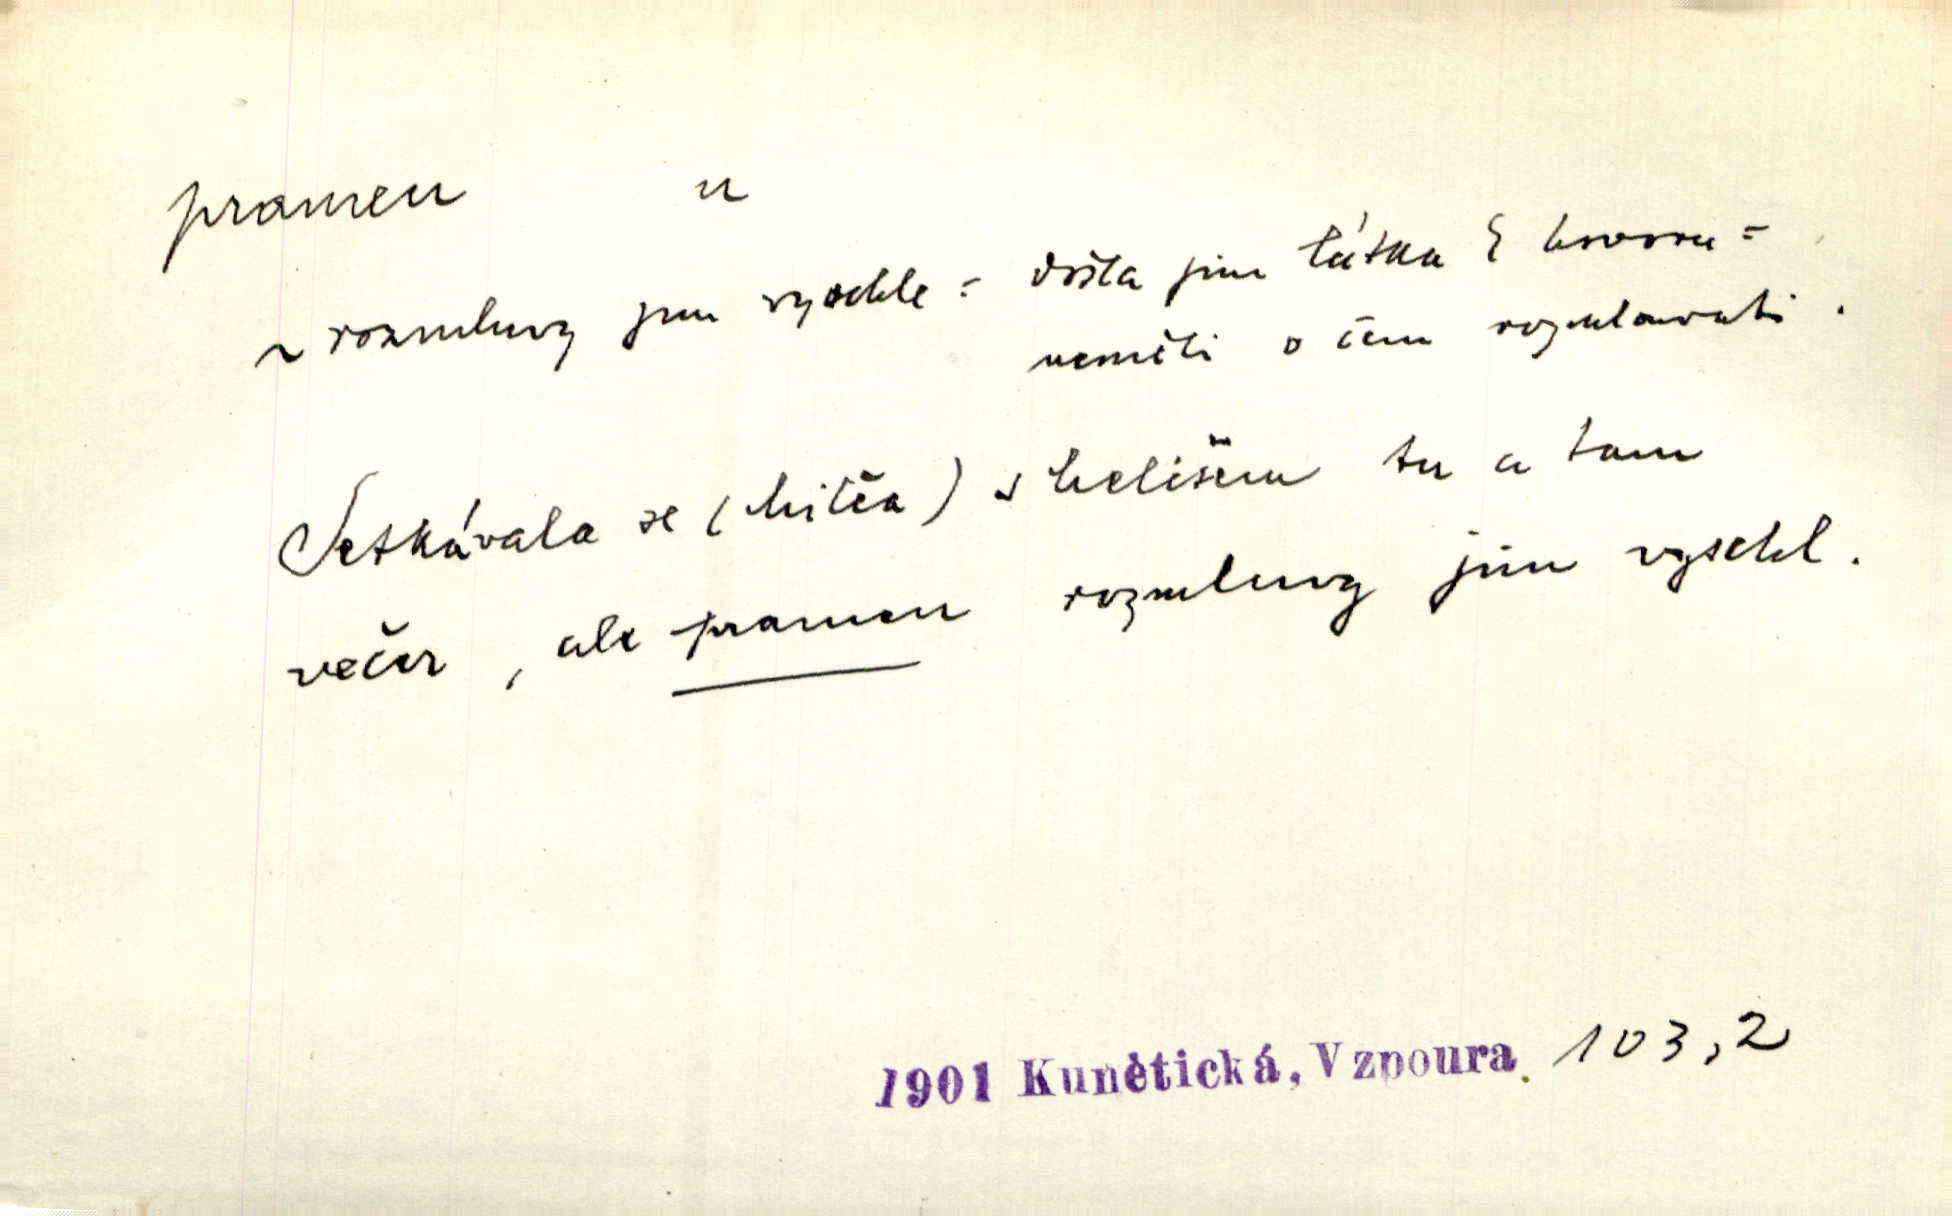 pramen u
~ rozmluvy jim vyschl = došla jim látka k hovoru =
neměli o čem rozmlouvati .
Setkávala se ( ) s tu a tam
večer , ale pramen rozmluvy jim vyschl .
1901 Kunětická, Vzpoura. 103,2